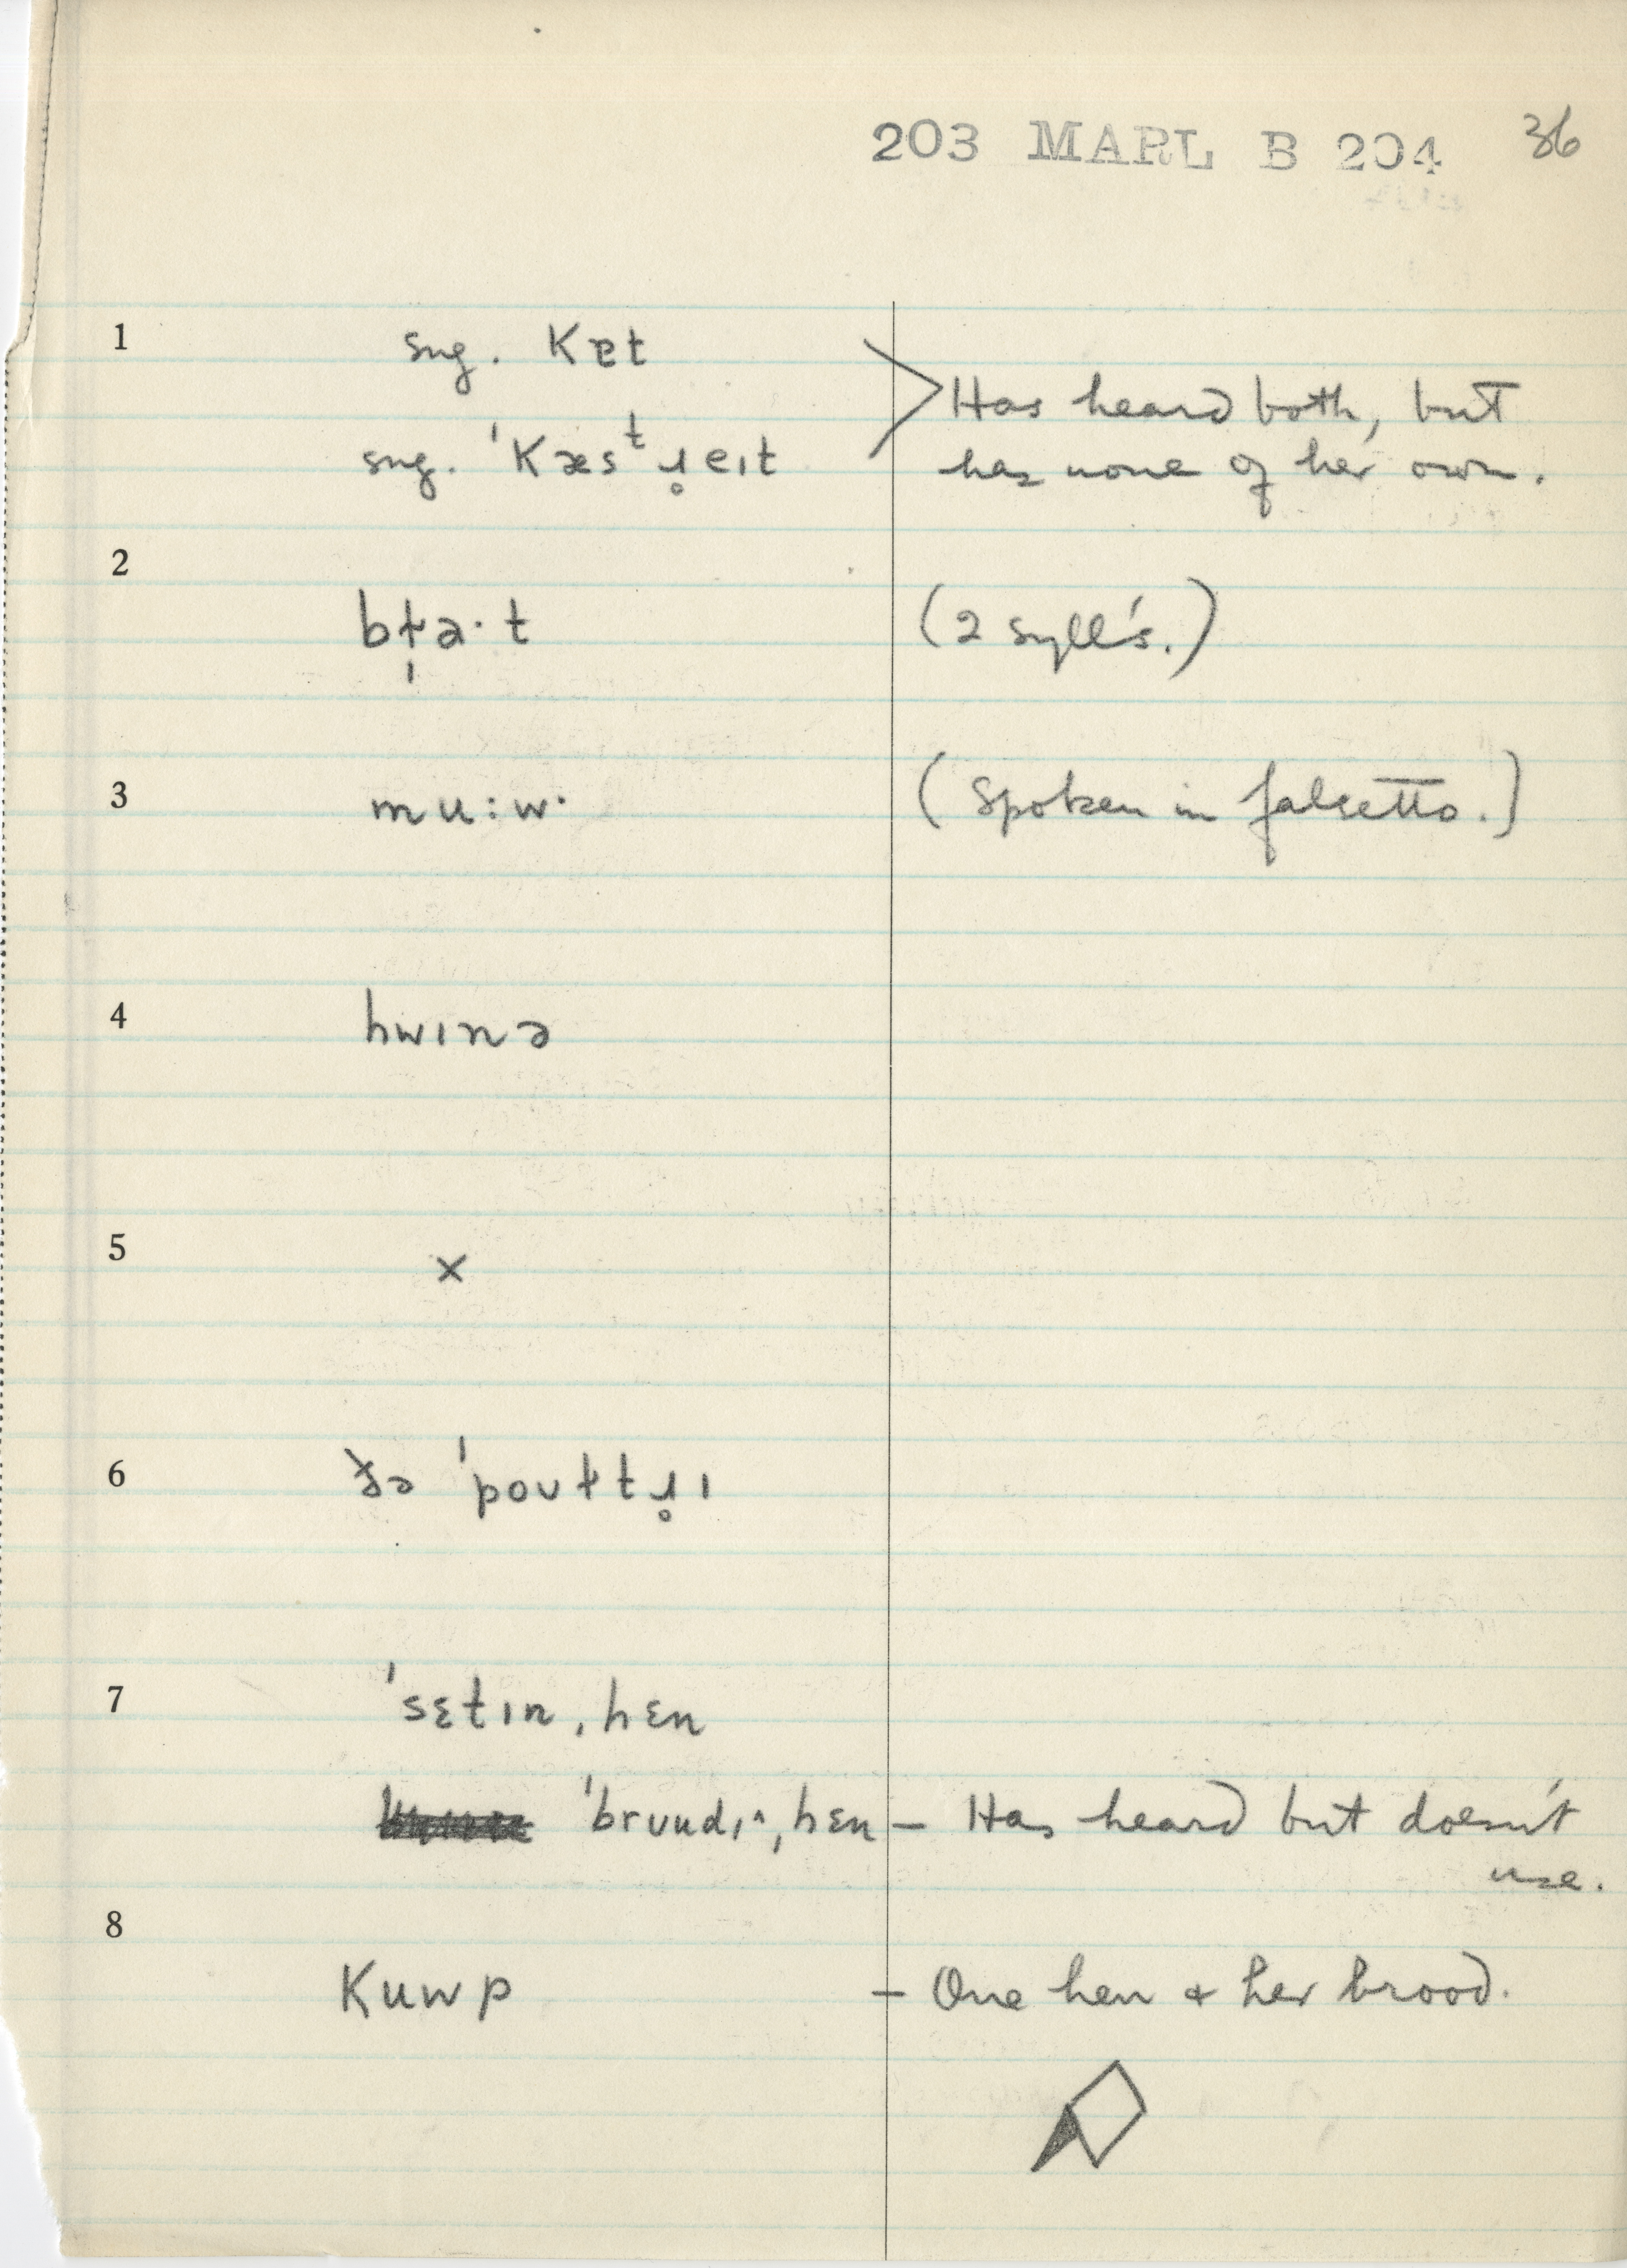 203 MARL B 204 36
1 sug. Kɐt
sug. ˈKæsᵗɹ̥eɪt
Has heard both, but
has none of her own.
2
bɫ̩ə·t (2 syll's.)
3 mu:w· (Spoken in falsetto.)
4 hwɪnə
5 x
6 ðə ˈpoʊɫtɹ̥ɪ
7 ˈsɛtɪnˌhɛn
ˈbruudɪ^ˌhɛn — Has heard but doesn't
use.
8
Kuwp — One hen & her brood.